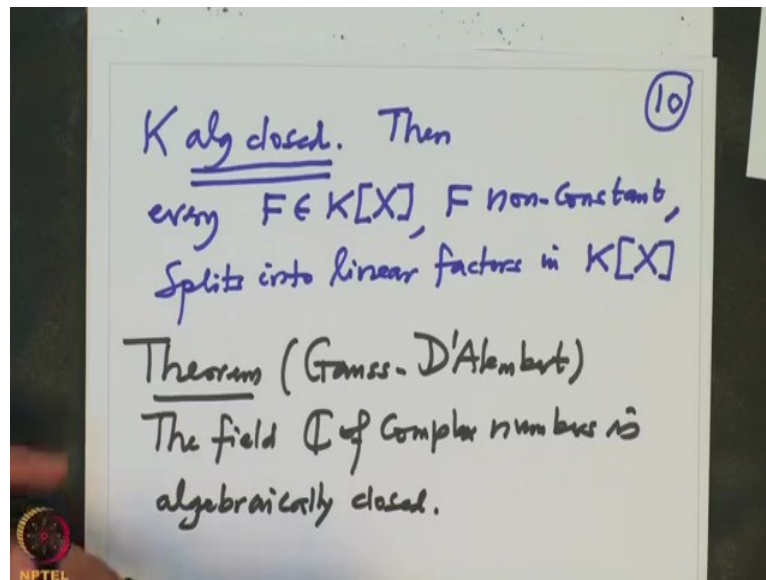 10
K alg closed. Then
every F ∈ K[X], F non-constant,
Splits into linear factors in K[X]
Theorem (Gauss-D'Alembert)
The field ℂ of Complex numbers is
algebraically closed.
NPTEL